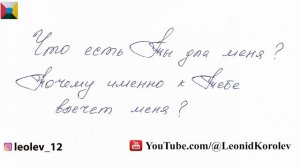 Что есть Ты для меня?
Почему именно к Тебе
влечет меня?
leolev_12
YouTube.com/@LeonidKorolev